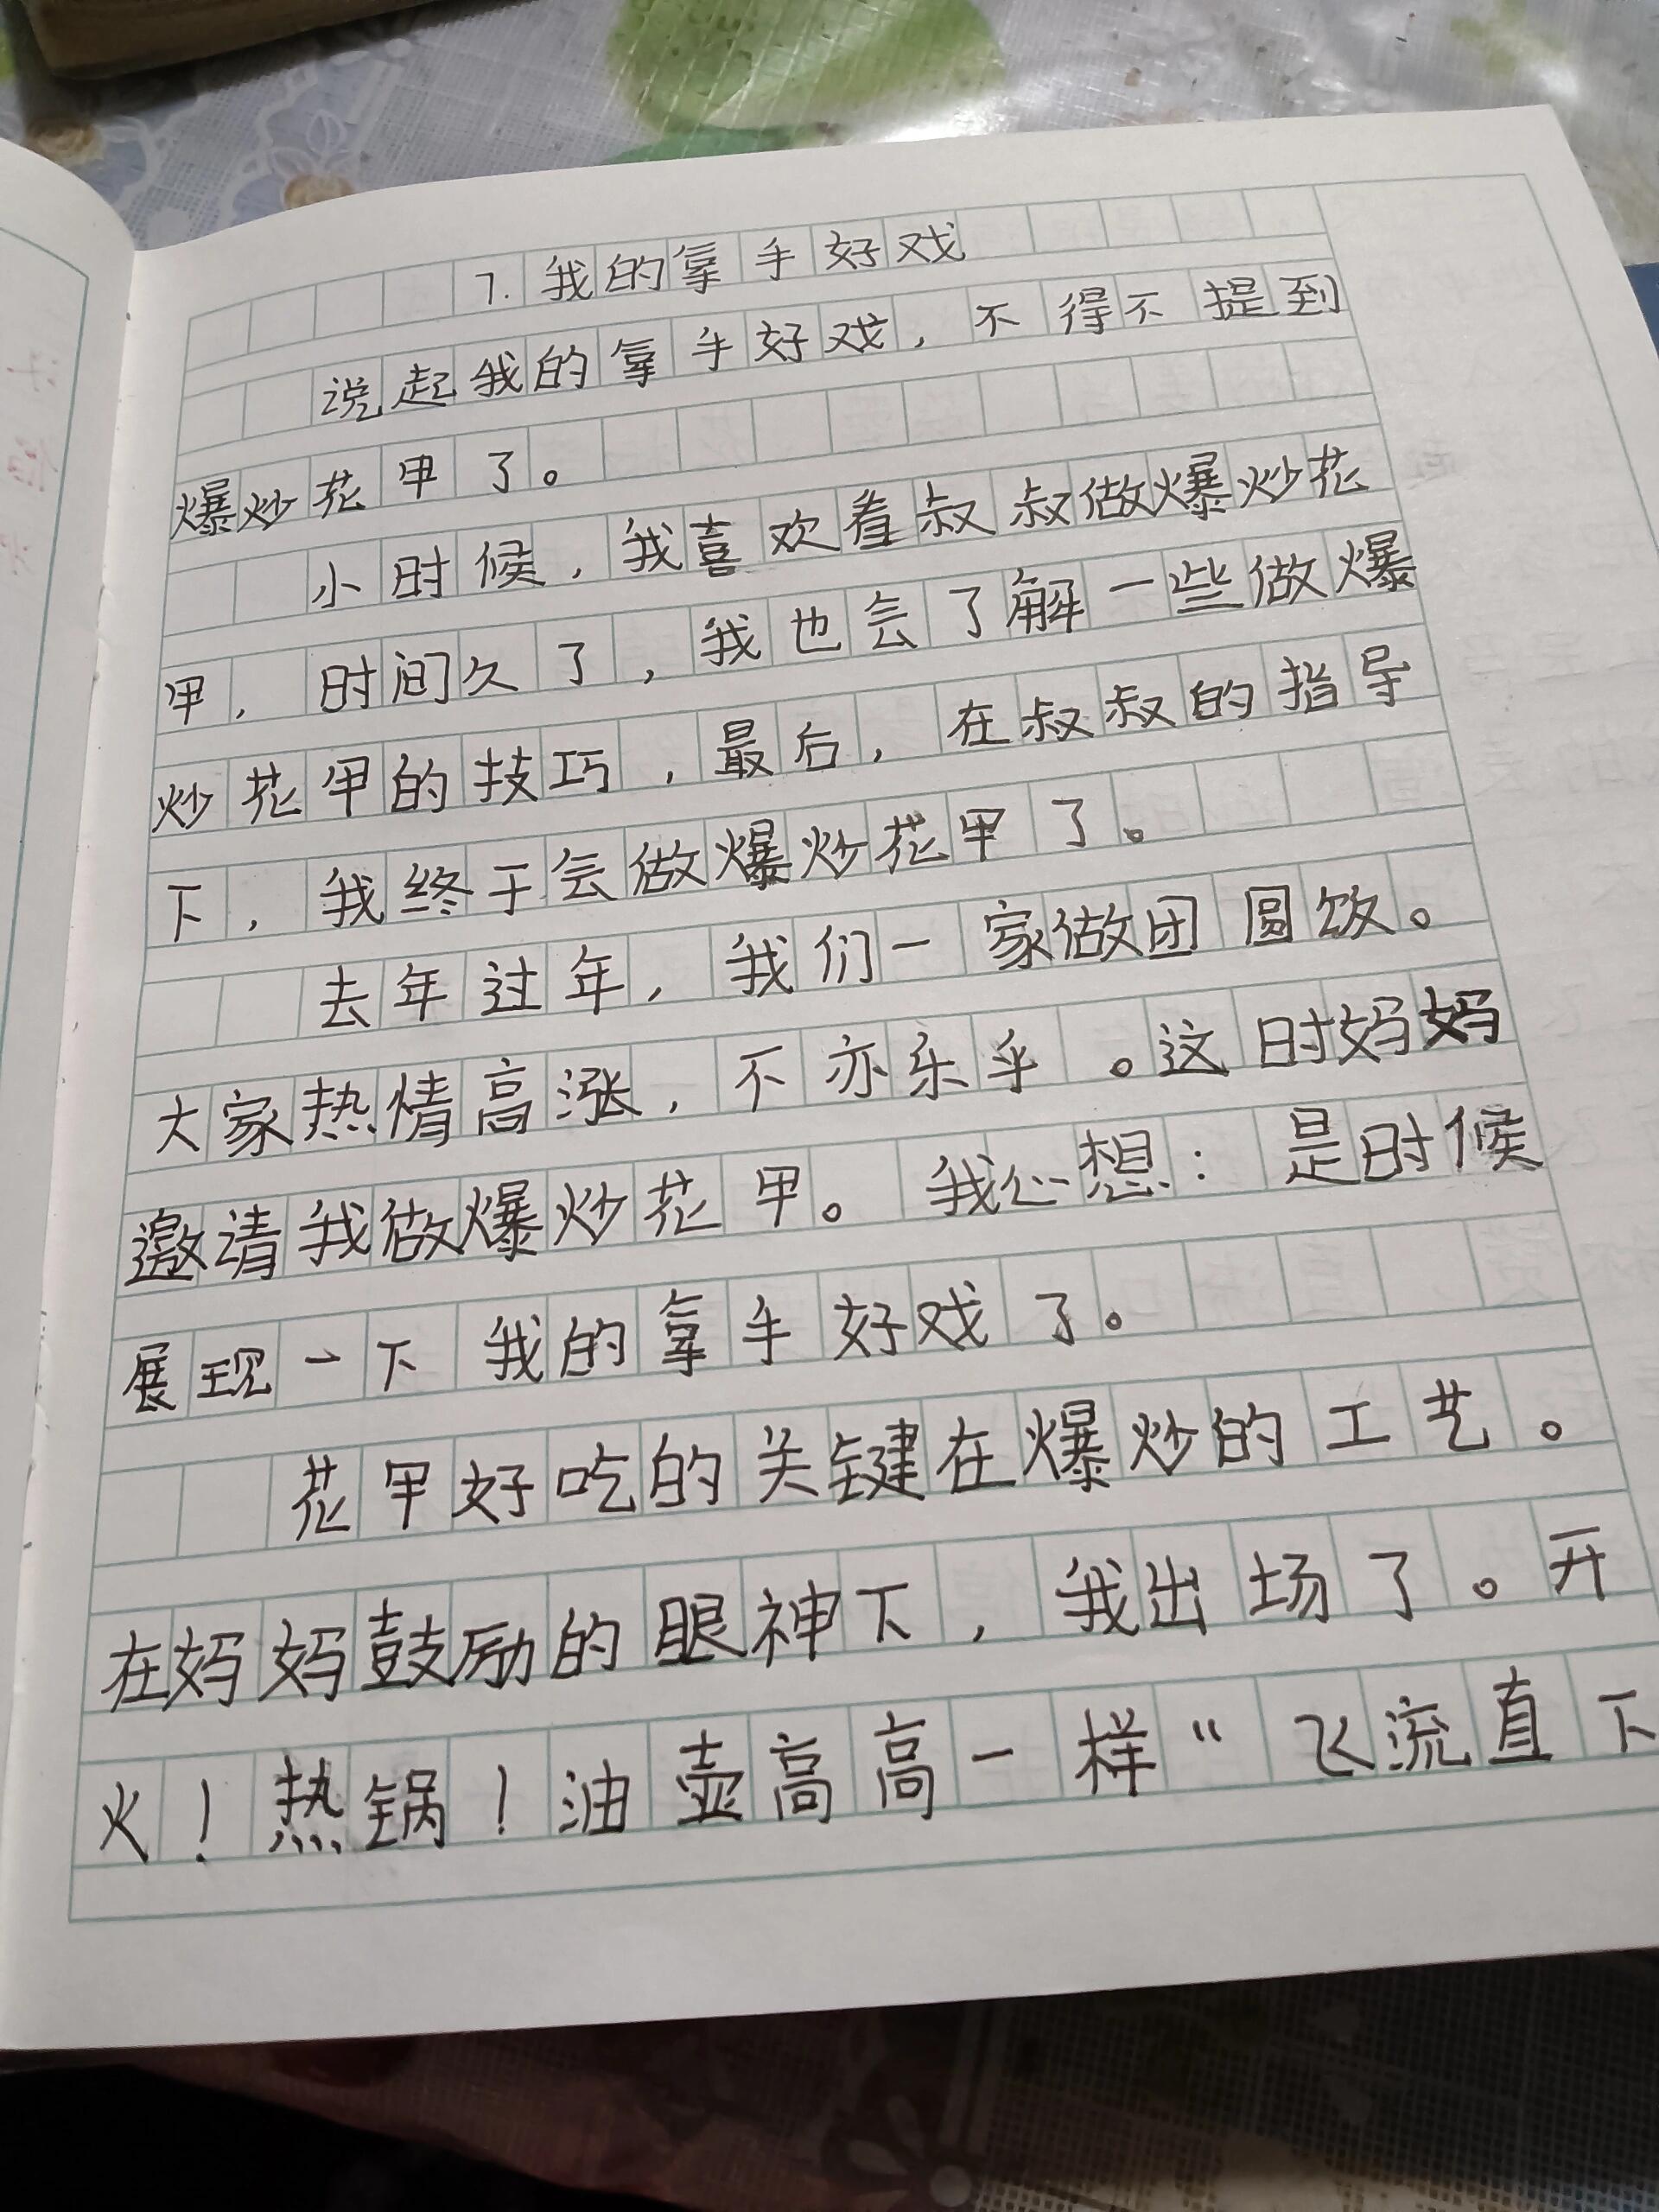 7.我的拿手好戏
说起我的拿手好戏，不得不提到
爆炒花甲了。
小时候，我喜欢看叔叔做爆炒花
甲，时间久了，我也会了解一些做爆
炒花甲的技巧，最后，在叔叔的指导
下，我终于会做爆炒花甲了。
去年过年，我们一家做团圆饭。
大家热情高涨，不亦乐乎。这时妈妈
邀请我做爆炒花甲。我心想：是时候
展现一下我的拿手好戏了。
花甲好吃的关键在爆炒的工艺。
在妈妈鼓励的眼神下，我出场了。开
火！热锅！油壶高高一样“飞流直下